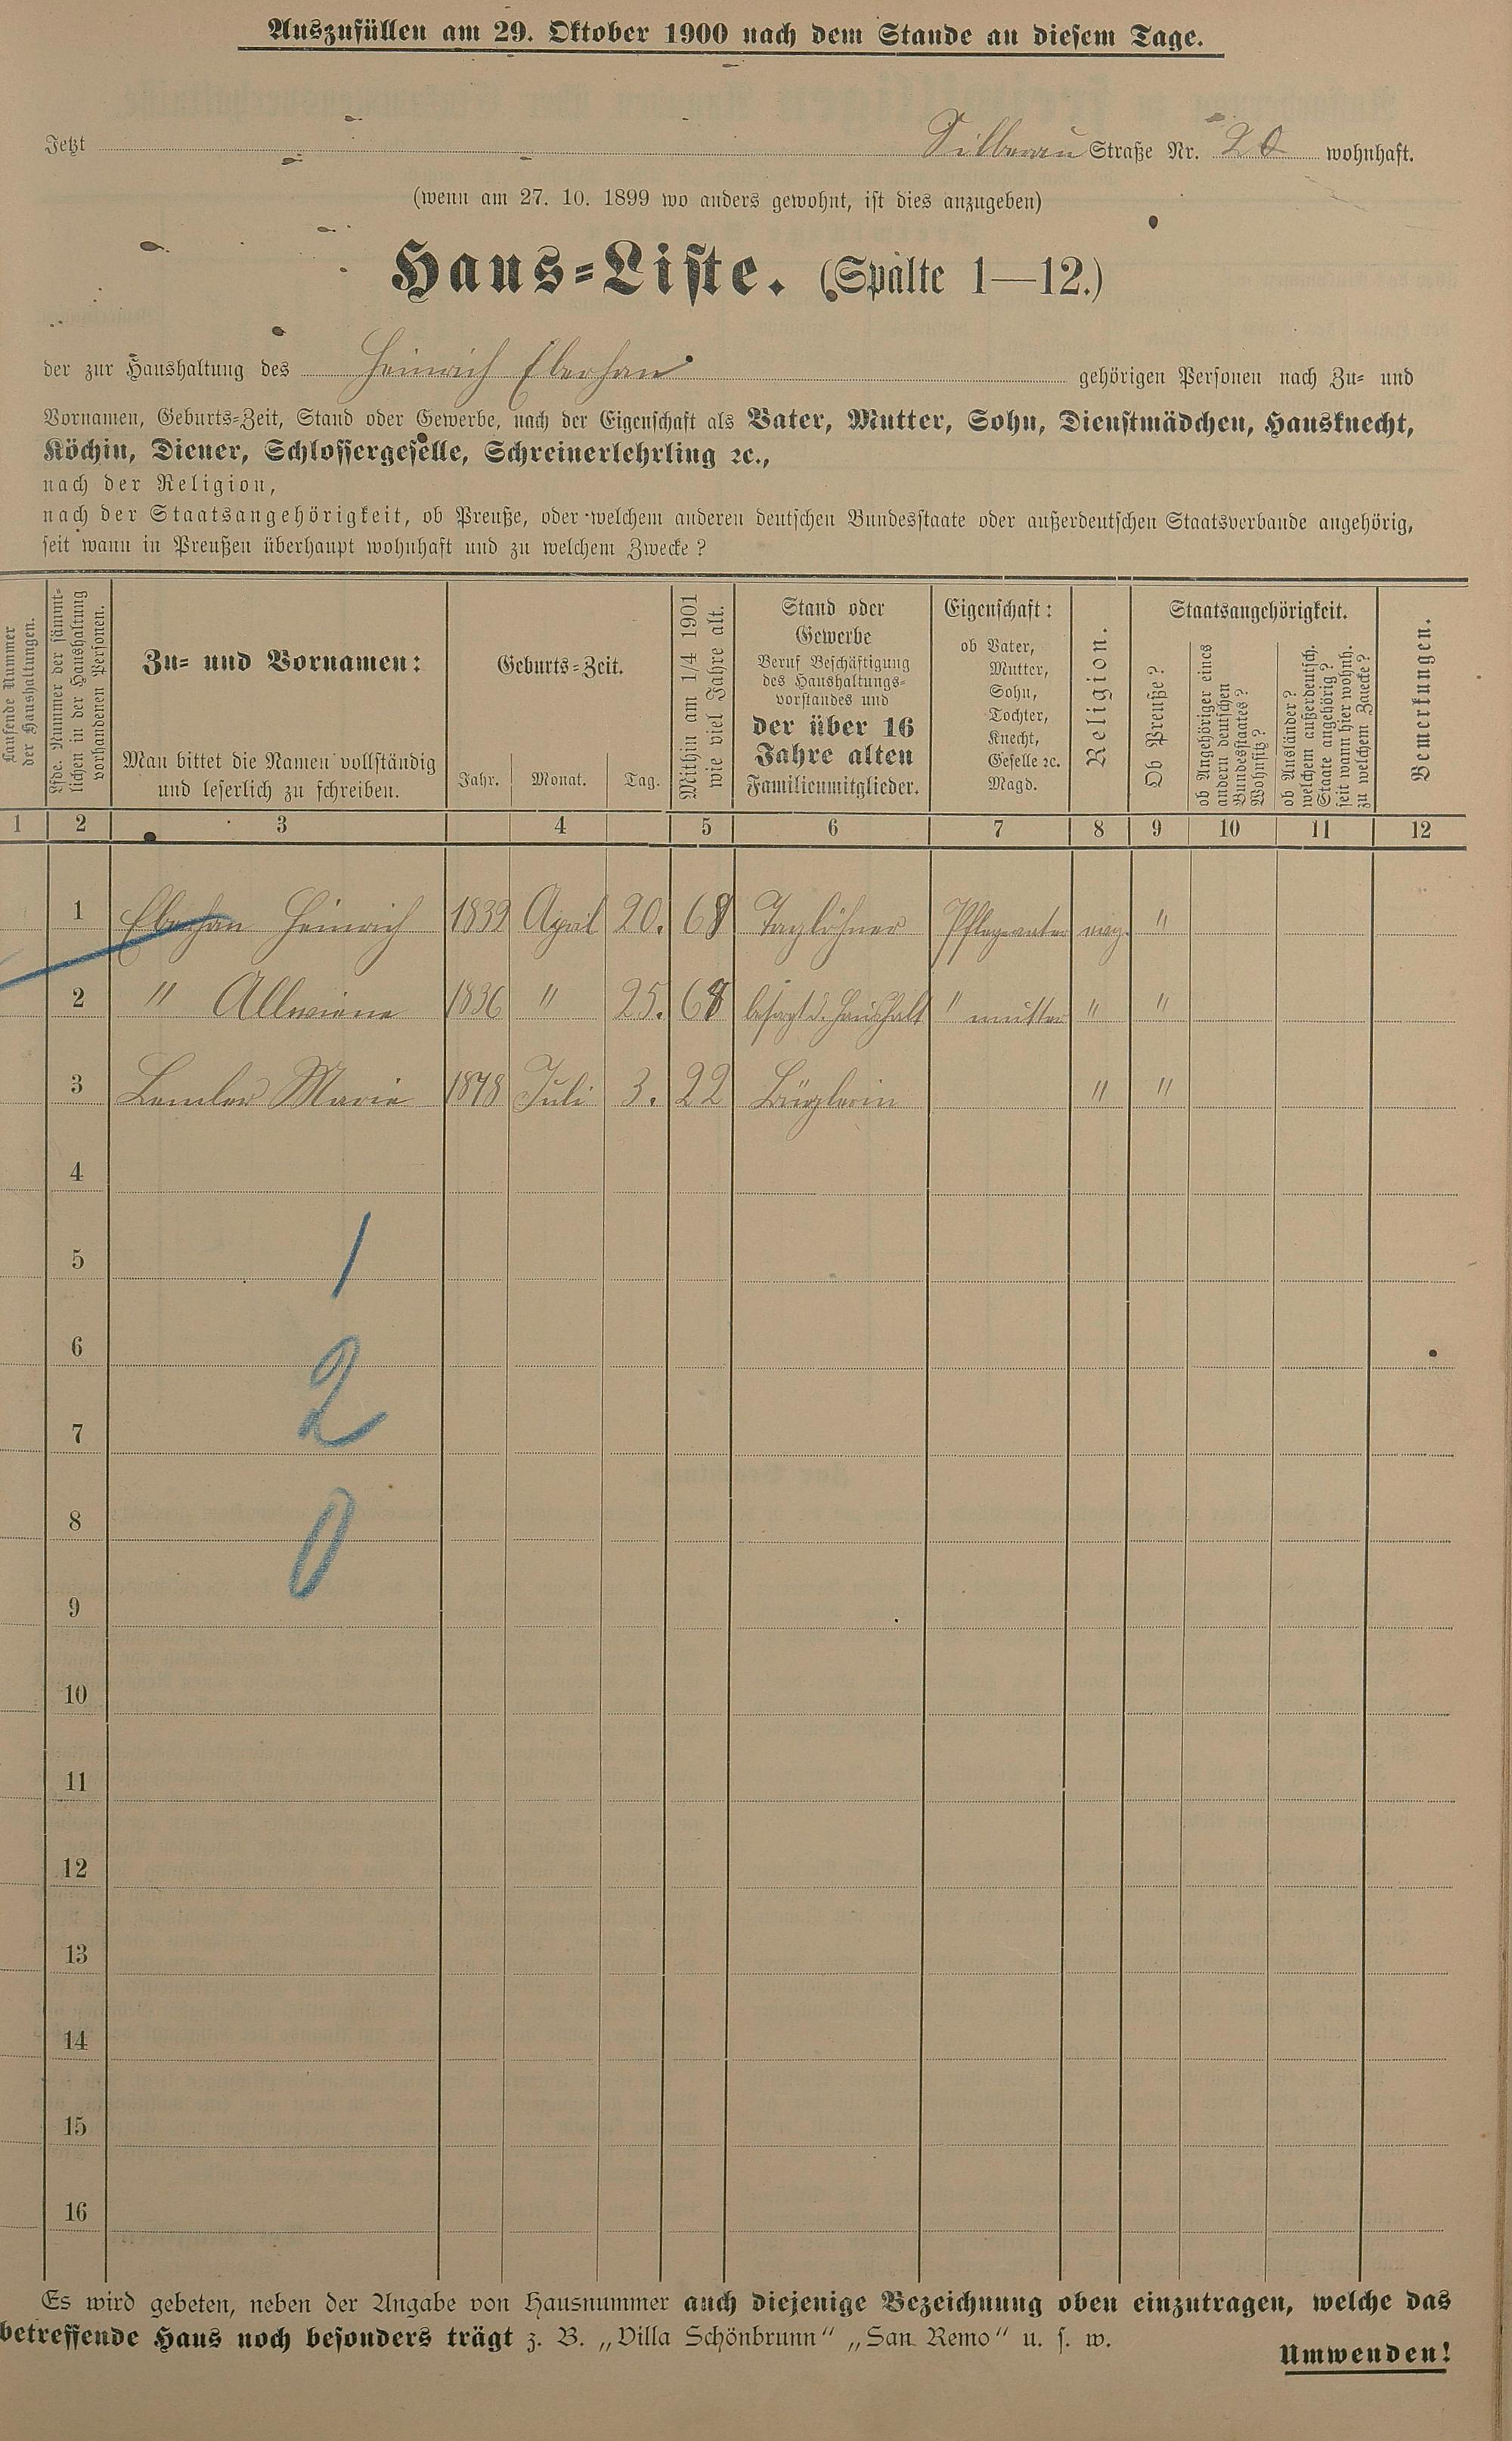 Auszufüllen am 29. Oktober 1900 nach dem Stande an diesem Tage.
Jetzt Silberau Straße Nr. 20 wohnhaft.
(wenn am 27. 10. 1899 wo anders gewohnt, ist dies anzugeben)
Haus-Liste. (Spalte 1—12.)
der zur Haushaltung des Heinrich Eberhan gehörigen Personen nach Zu- und
Vornamen, Geburts-Zeit, Stand oder Gewerbe, nach der Eigenschaft als Vater, Mutter, Sohn, Dienstmädchen, Hausknecht,
Köchin, Diener, Schlossergeselle, Schreinerlehrling ꝛc.,
nach der Religion,
nach der Staatsangehörigkeit, ob Preuße, oder welchem anderen deutschen Bundesstaate oder außerdeutschen Staatsverbande angehörig,
seit wann in Preußen überhaupt wohnhaft und zu welchem Zwecke?
Laufende Nummer
der Haushaltungen.
Lfde. Nummer der sämmt-
lichen in der Haushaltung
vorhandenen Personen.
Zu- und Vornamen:
Man bittet die Namen vollständig
und leserlich zu schreiben.
Geburts-Zeit.
Jahr. Monat. Tag.
Mithin am 1/4 1901
wie viel Jahre alt.
Stand oder
Gewerbe
Beruf Beschäftigung
des Haushaltungs-
vorstandes und
der über 16
Jahre alten
Familienmitglieder.
Eigenschaft:
ob Vater,
Mutter,
Sohn,
Tochter,
Knecht,
Geselle ꝛc.
Magd.
Religion.
Staatsangehörigkeit.
Ob Preuße?
ob Angehöriger eines
andern deutschen
Bundesstaates?
Wohnsitz?
ob Ausländer?
welchem außerdeutsch.
Staate angehörig?
seit wann hier wohnh.
zu welchem Zwecke?
Bemerkungen.
1 2 3 4 5 6 7 8 9 10 11 12
1 Eberhan Heinrich 1832 April 20. 68 Taglöhner Pflegevater evg. "
2 " Allwiene 1836 " 25. 68 besorgt d. Haushalt " mutter " "
3 Lemler Marie 1878 Juli 3. 22 Büglerin " "
4
5 1
6
7 2
8 0
9
10
11
12
13
14
15
16
Es wird gebeten, neben der Angabe von Hausnummer auch diejenige Bezeichnung oben einzutragen, welche das
betreffende Haus noch besonders trägt z. B. „Villa Schönbrunn“ „San Remo“ u. s. w.
Umwenden!